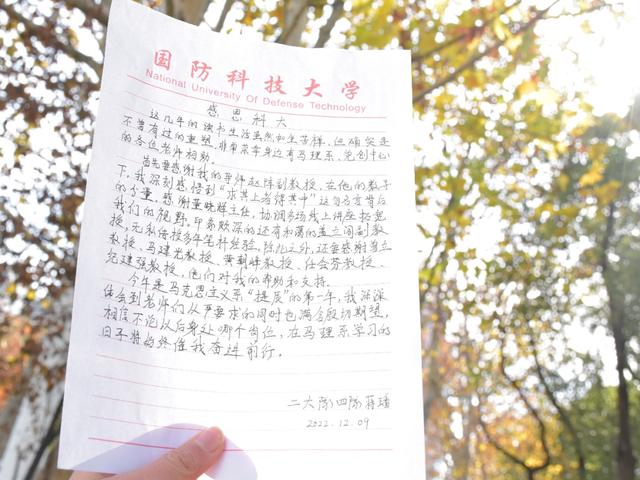 国防科技大学
National University Of Defense Technology
感恩科大
这几年的读书生活虽然如尘苦样，但确实是
不曾有过的重塑，非常荣幸身边有马理系、党创中心
的各位老师相助。
首先要感谢我的导师赵阵副教授，在他的教导
下，我深刻感悟到“求其上者得其中”这句方言背后
的分量。感谢董晓辉主任，协调多场线上讲座拓宽
我们的视野。印象颇深的还有和蔼的孟立阁副教
授，无私传授多年笔杆经验。除此之外，还要感谢
教授、马建光教授、黄朝峰教授、任会芬教授、
纪建强教授，他们对我的帮助和支持。
今年是马克思主义系“提质”的第一年，我深深
体会到老师们从严要求的同时也满含殷切期望，
相信不论从后身处哪个岗位，在马理系学习的
日子将始终催我奋进前行。
二大队四队蒋璠
2022.12.09